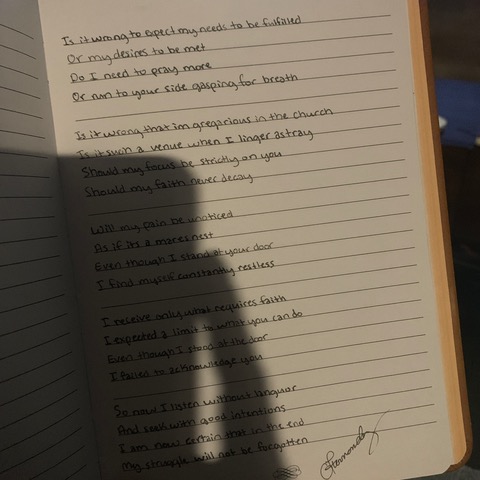 Is it wrong to expect my needs to be fulfilled
Or my desires to be met
Do I need to pray more
Or run to your side gasping for breath
Is it wrong that im gregarious in the church
Is it such a venue when I linger astray
Should my focus be strictly on you
Should my faith never decay
Will my pain be unoticed
As if its a mares nest
Even though I stand at your door
I find myself constantly restless
I receive only what requires faith
I expected a limit to what you can do
Even though I stood at the door
I failed to acknowledge you
So now I listen without languor
And seek with good intentions
I am now certain that in the end
My struggle will not be forgotten